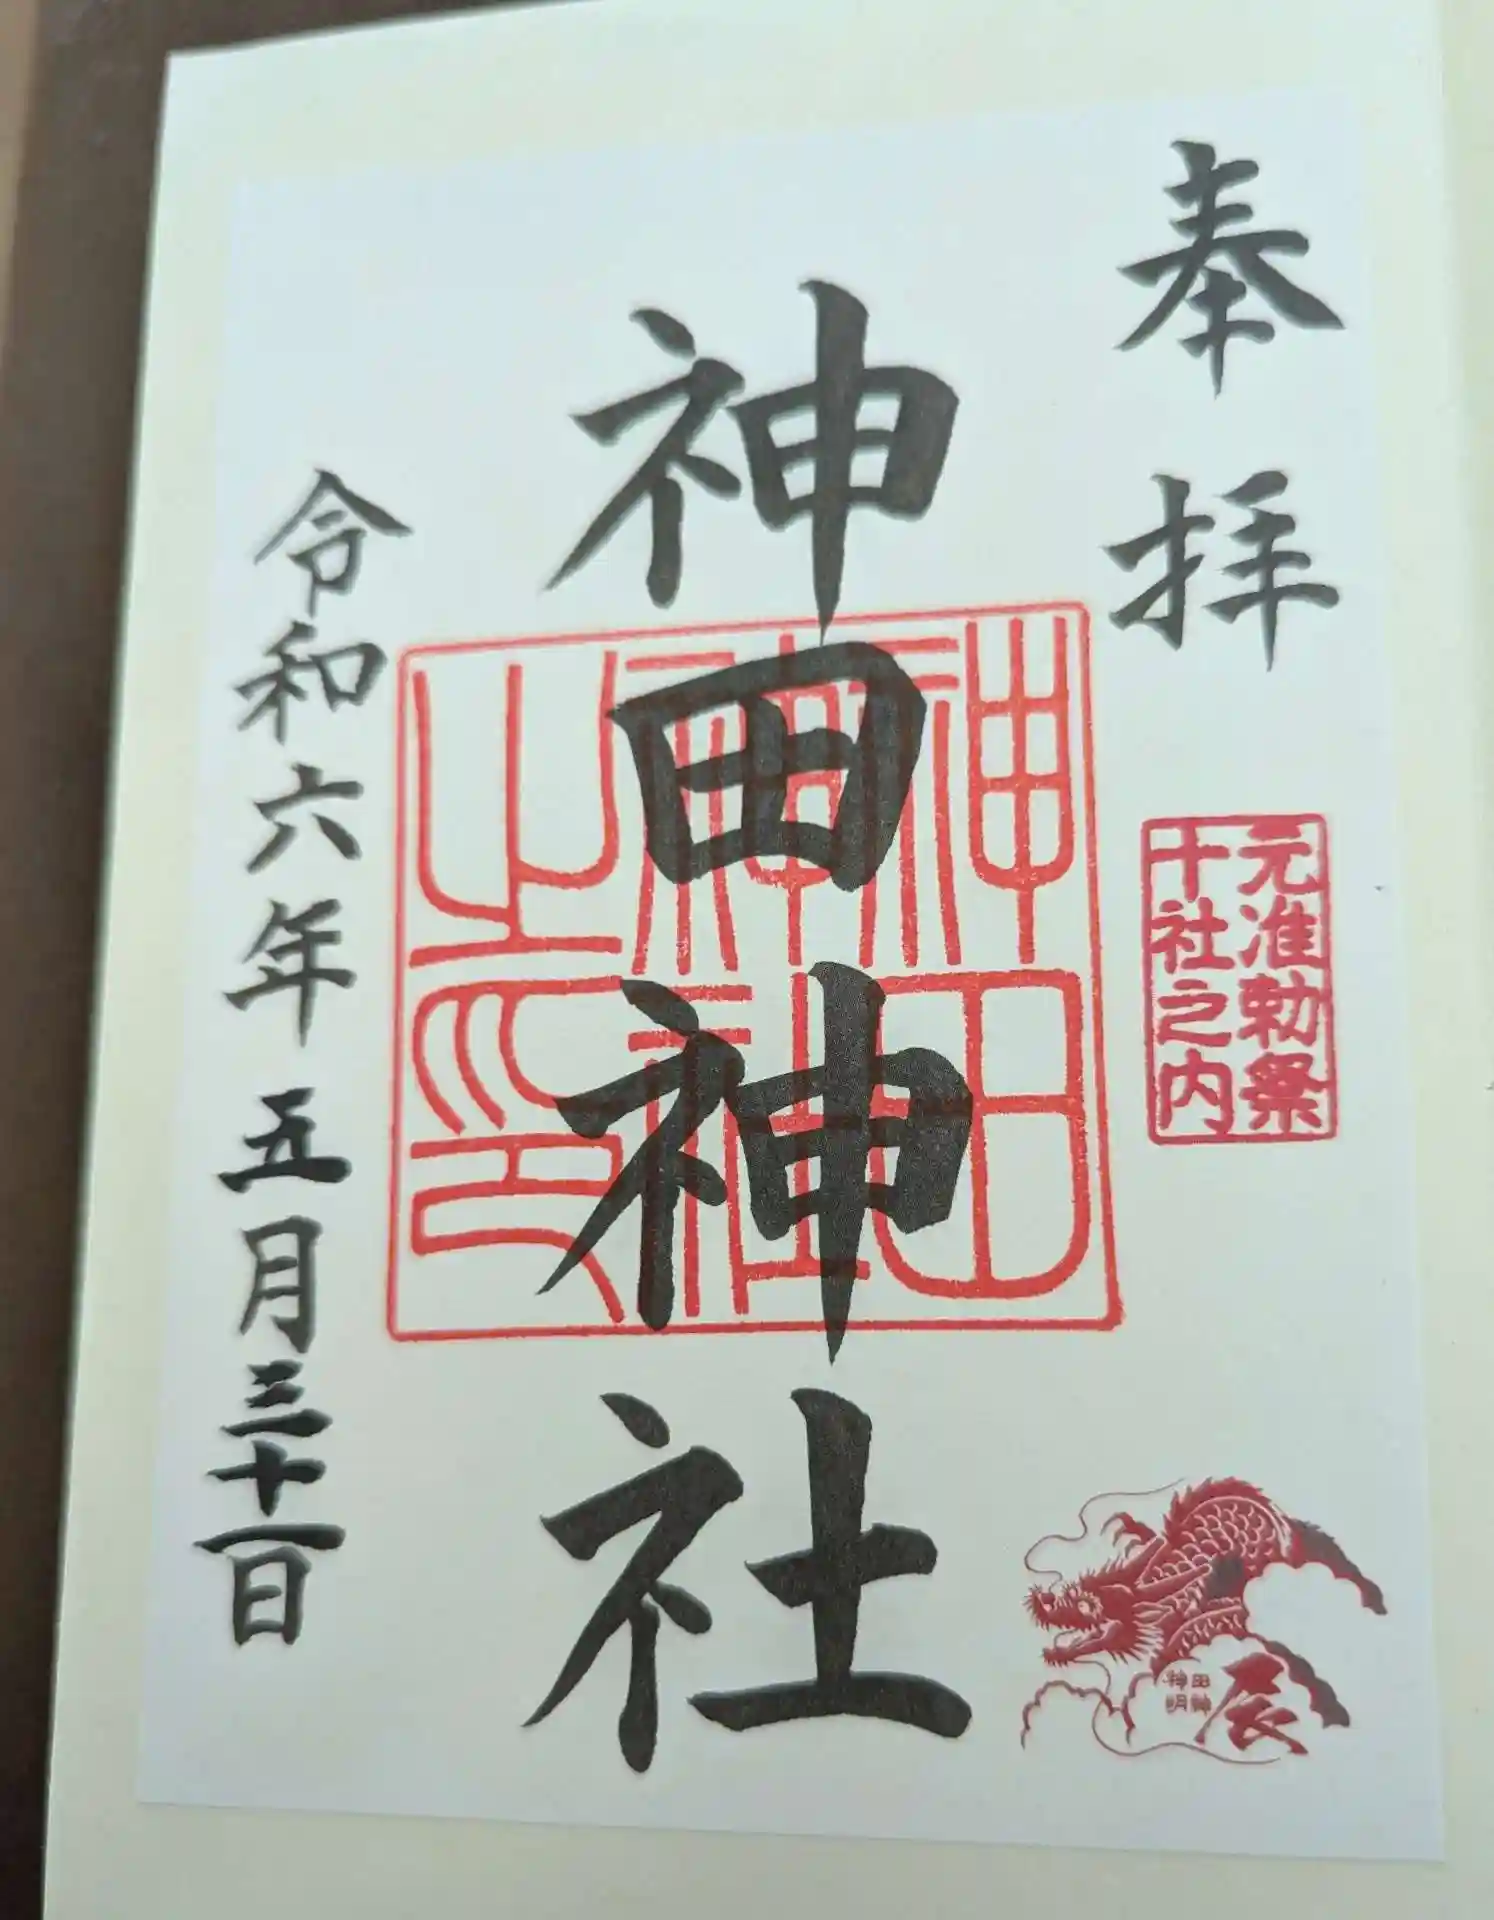 奉拝
元准勅祭
十社之内
神田神社
神田
神社
之印
辰
田神
神明
令和六年五月三十一日